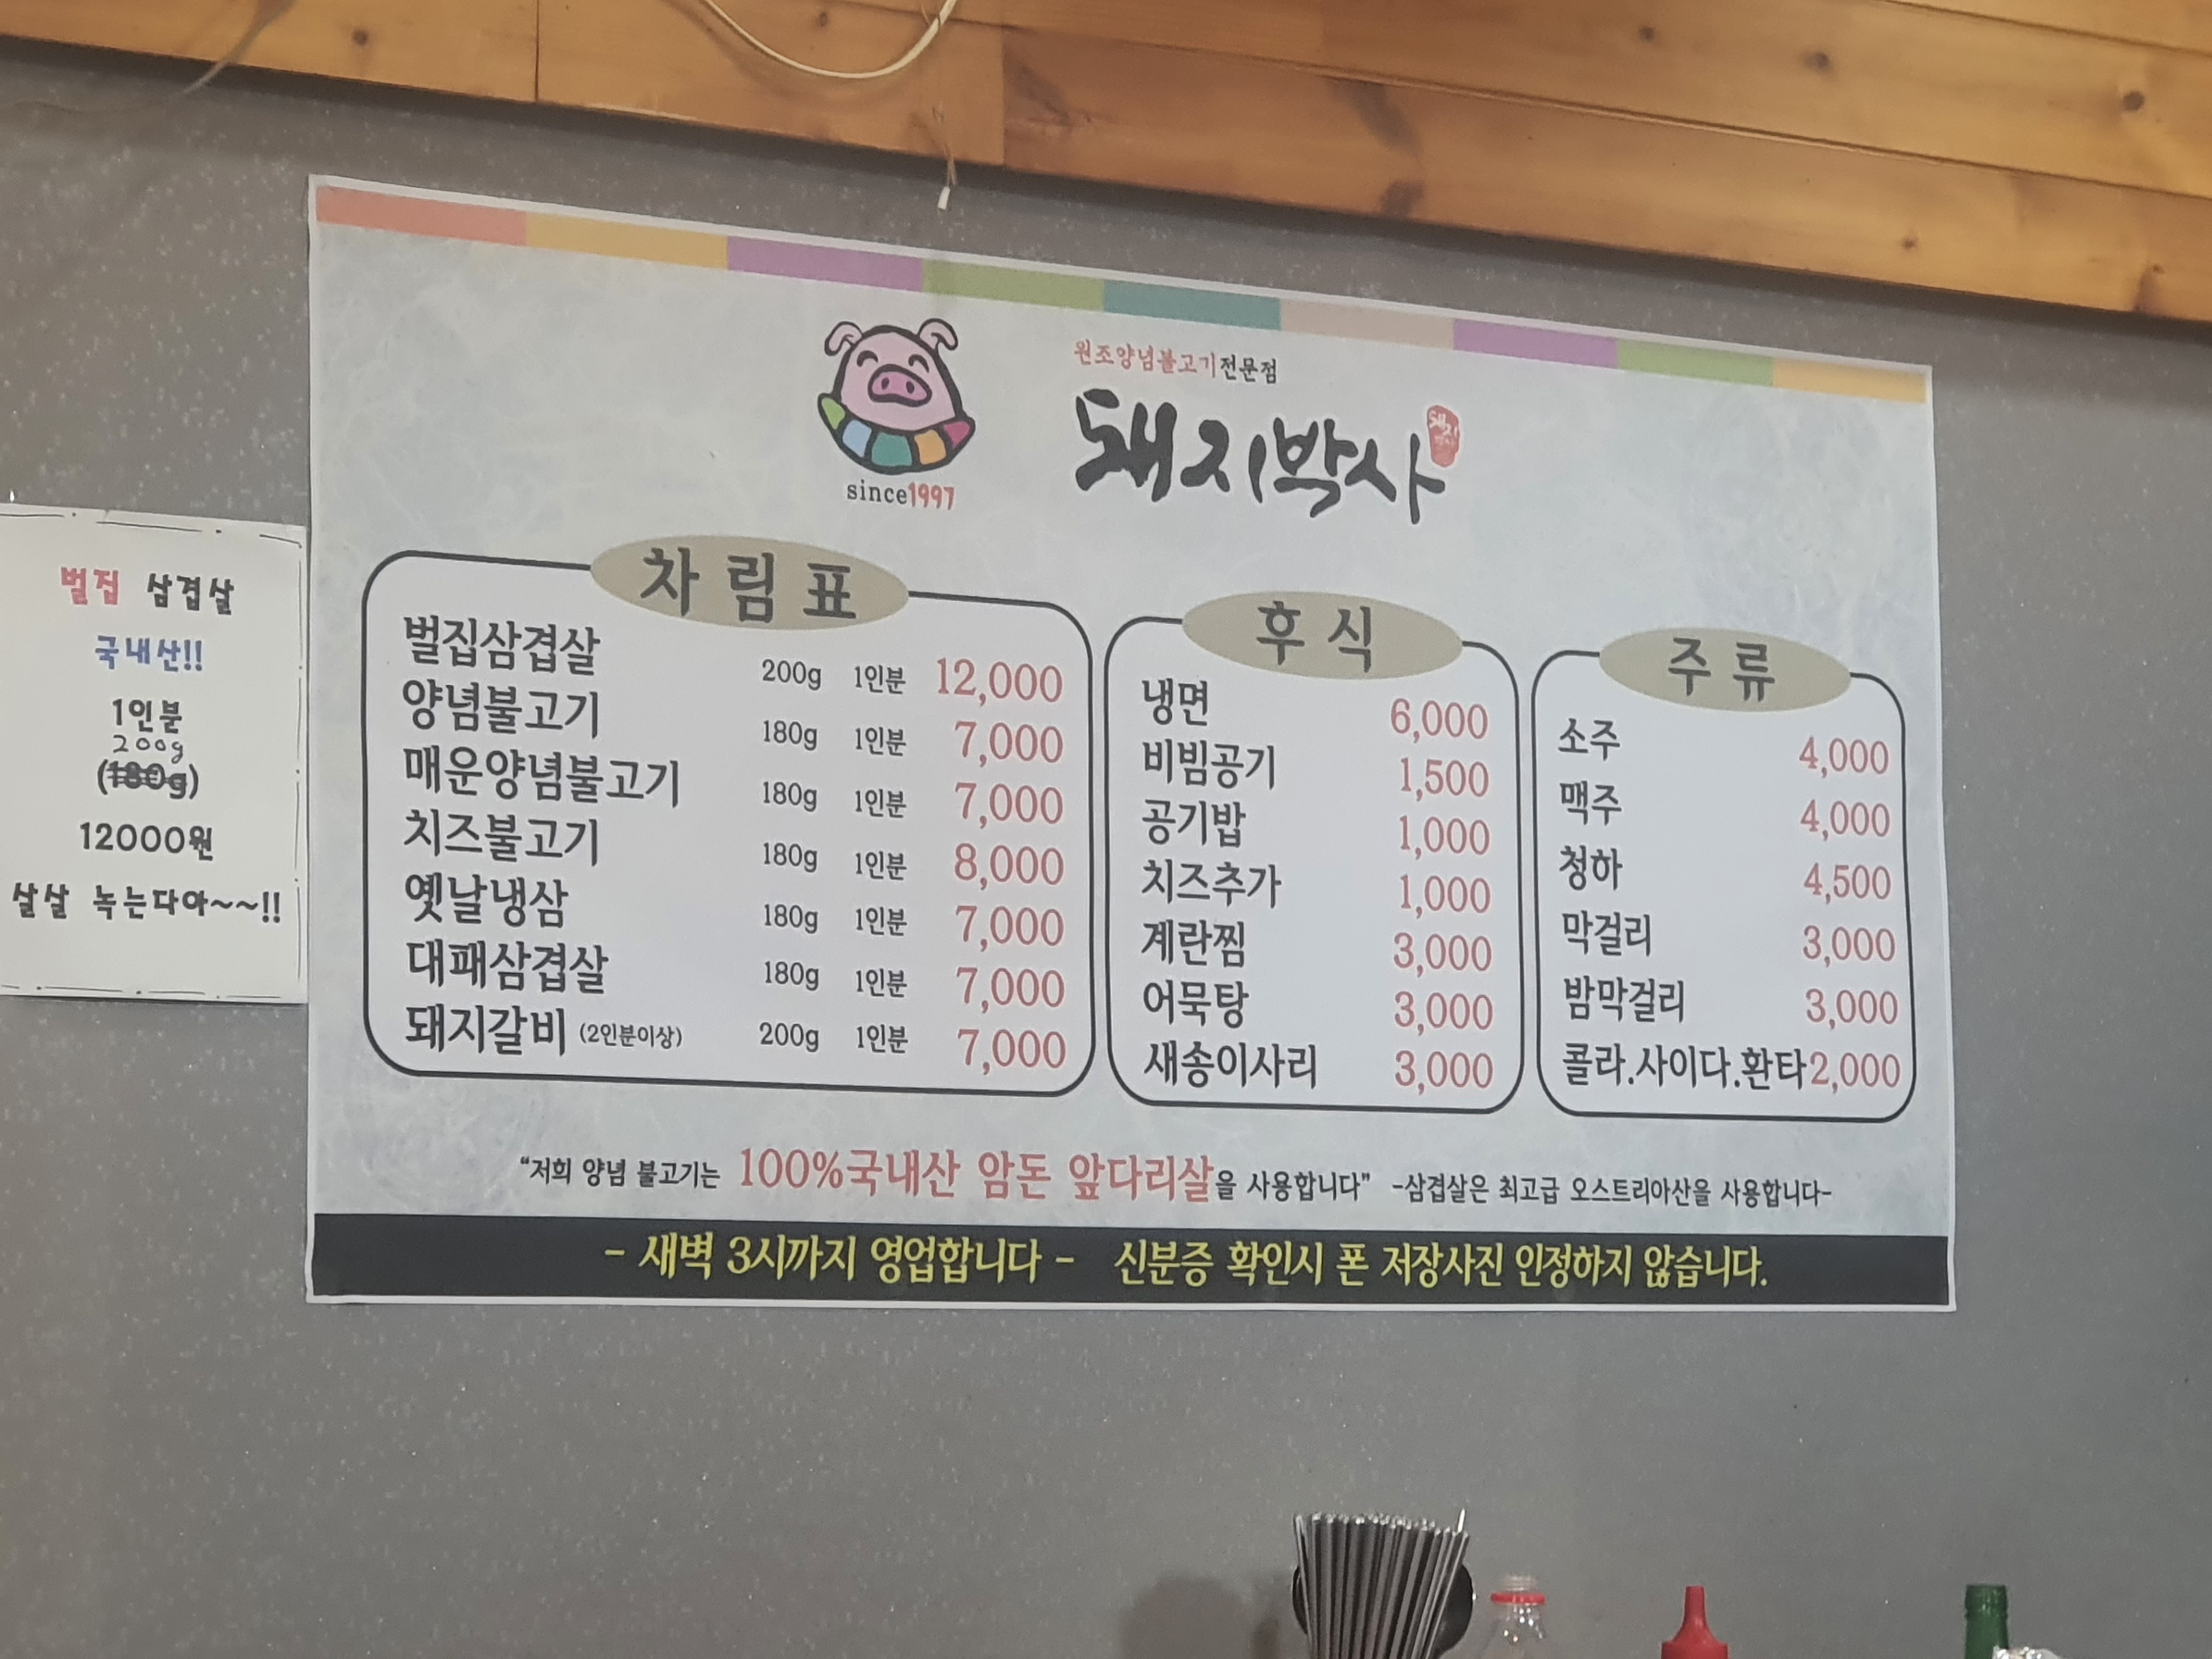 벌집 삼겹살
국내산!!
1인분
200g
(180g)
12000원
살살 녹는다아~~!!
since1997
원조양념불고기전문점
돼지박사
돼지
차림표
벌집삼겹살 200g 1인분 12,000
양념불고기 180g 1인분 7,000
매운양념불고기 180g 1인분 7,000
치즈불고기 180g 1인분 8,000
옛날냉삼 180g 1인분 7,000
대패삼겹살 180g 1인분 7,000
돼지갈비 (2인분이상) 200g 1인분 7,000
후식
냉면 6,000
비빔공기 1,500
공기밥 1,000
치즈추가 1,000
계란찜 3,000
어묵탕 3,000
새송이사리 3,000
주류
소주 4,000
맥주 4,000
청하 4,500
막걸리 3,000
밤막걸리 3,000
콜라.사이다.환타 2,000
“저희 양념 불고기는 100%국내산 암돈 앞다리살을 사용합니다” -삼겹살은 최고급 오스트리아산을 사용합니다-
- 새벽 3시까지 영업합니다 - 신분증 확인시 폰 저장사진 인정하지 않습니다.